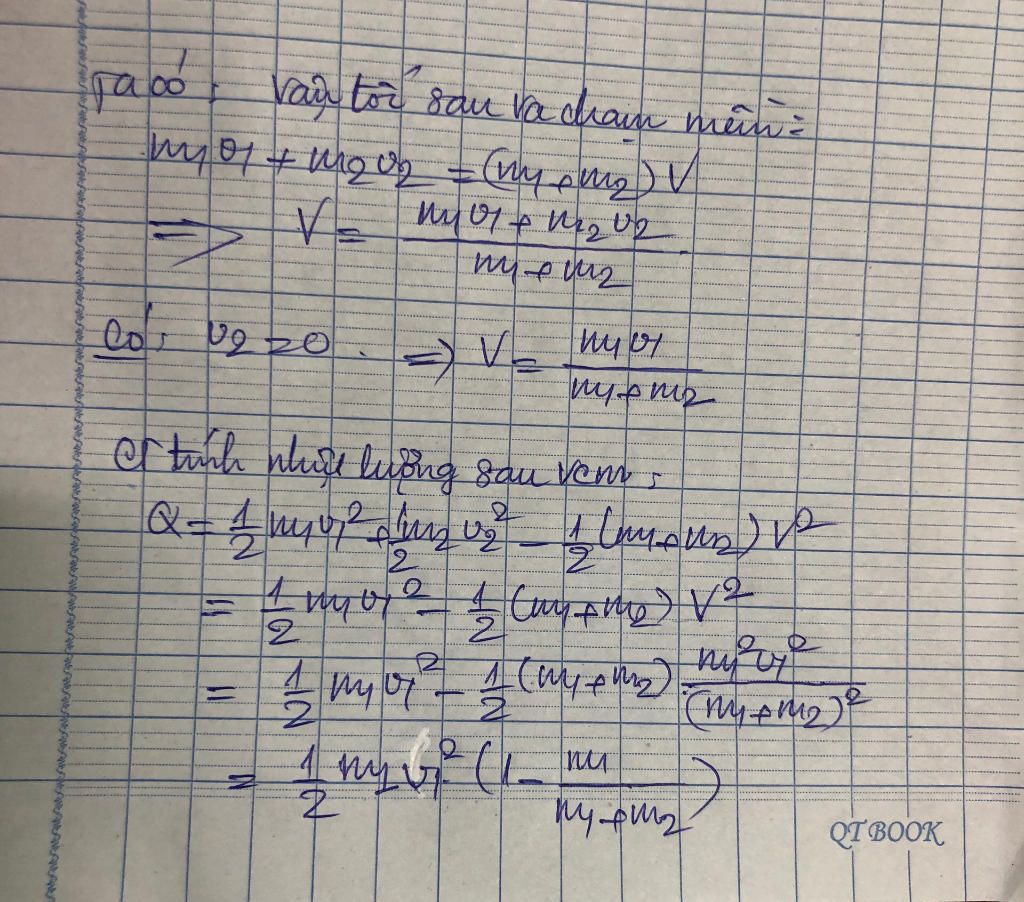 Ta có: Vận tốc sau va chạm mềm:
m₁v₁ + m₂v₂ = (m₁+m₂)V
=> V = (m₁v₁ + m₂v₂)/(m₁+m₂)
Có: v₂ = 0. => V = m₁v₁/(m₁+m₂)
tính nhiệt lượng sau vcm:
Q = 1/2 m₁v₁² + 1/2 m₂v₂² - 1/2 (m₁+m₂)V²
= 1/2 m₁v₁² - 1/2 (m₁+m₂) V²
= 1/2 m₁v₁² - 1/2 (m₁+m₂) m₁²v₁²/(m₁+m₂)²
= 1/2 m₁v₁² (1 - m₁/(m₁+m₂))
QTBOOK